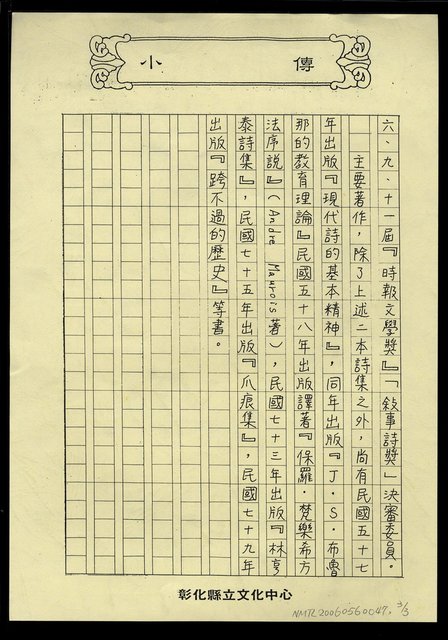 小傳
六、九、十一屆『時報文學獎』「敘事詩獎」決審委員。
主要著作，除了上述二本詩集之外，尚有民國五十七
年出版『現代詩的基本精神』，同年出版『J·S·布魯
那的教育理論』民國五十八年出版譯著『保羅·梵樂希方
法序說』（Andre Maurois著），民國七十三年出版『林亨
泰詩集』，民國七十五年出版『爪痕集』，民國七十九年
出版『跨不過的歷史』等書。
彰化縣立文化中心
NMTL20060560047, 3/3